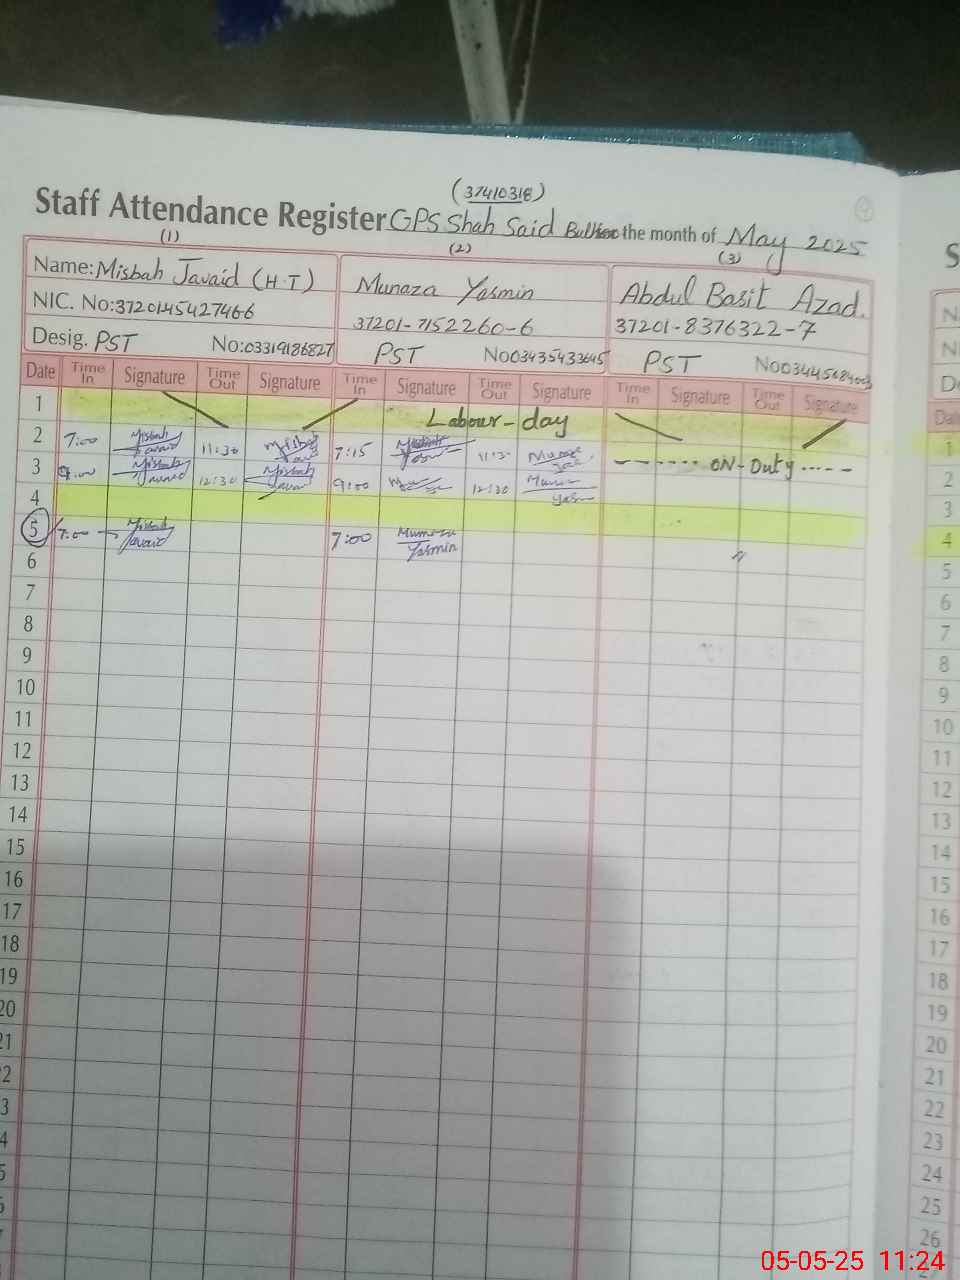 (37410318)
Staff Attendance Register GPS Shah Said the month of May 2025
(1) (2) (3)
Name: Misbah Javaid (H.T) Munaza Yasmin Abdul Basit Azad.
NIC. No: 3720145427466 37201-7152260-6 37201-8376322-7
Desig. PST No: 03319186827 PST No 03435433645 PST No
Date Time In Signature Time Out Signature Time In Signature Time Out Signature Time In Signature Time Out Signature
1 Labour-day
2 7:00 Misbah Javaid 11:30 Misbah 7:15 11:30 ON-Duty
3 9:00 Misbah Javaid 12:30 Misbah Javaid 9:00 12:30
4
5 7:00 Misbah Javaid 7:00 Munaza Yasmin
6
7
8
9
10
11
12
13
14
15
16
17
18
19
20
21
S
N
N
D
Dat
1
2
3
4
5
6
7
8
9
10
11
12
13
14
15
16
17
18
19
20
21
22
23
24
25
26
05-05-25 11:24